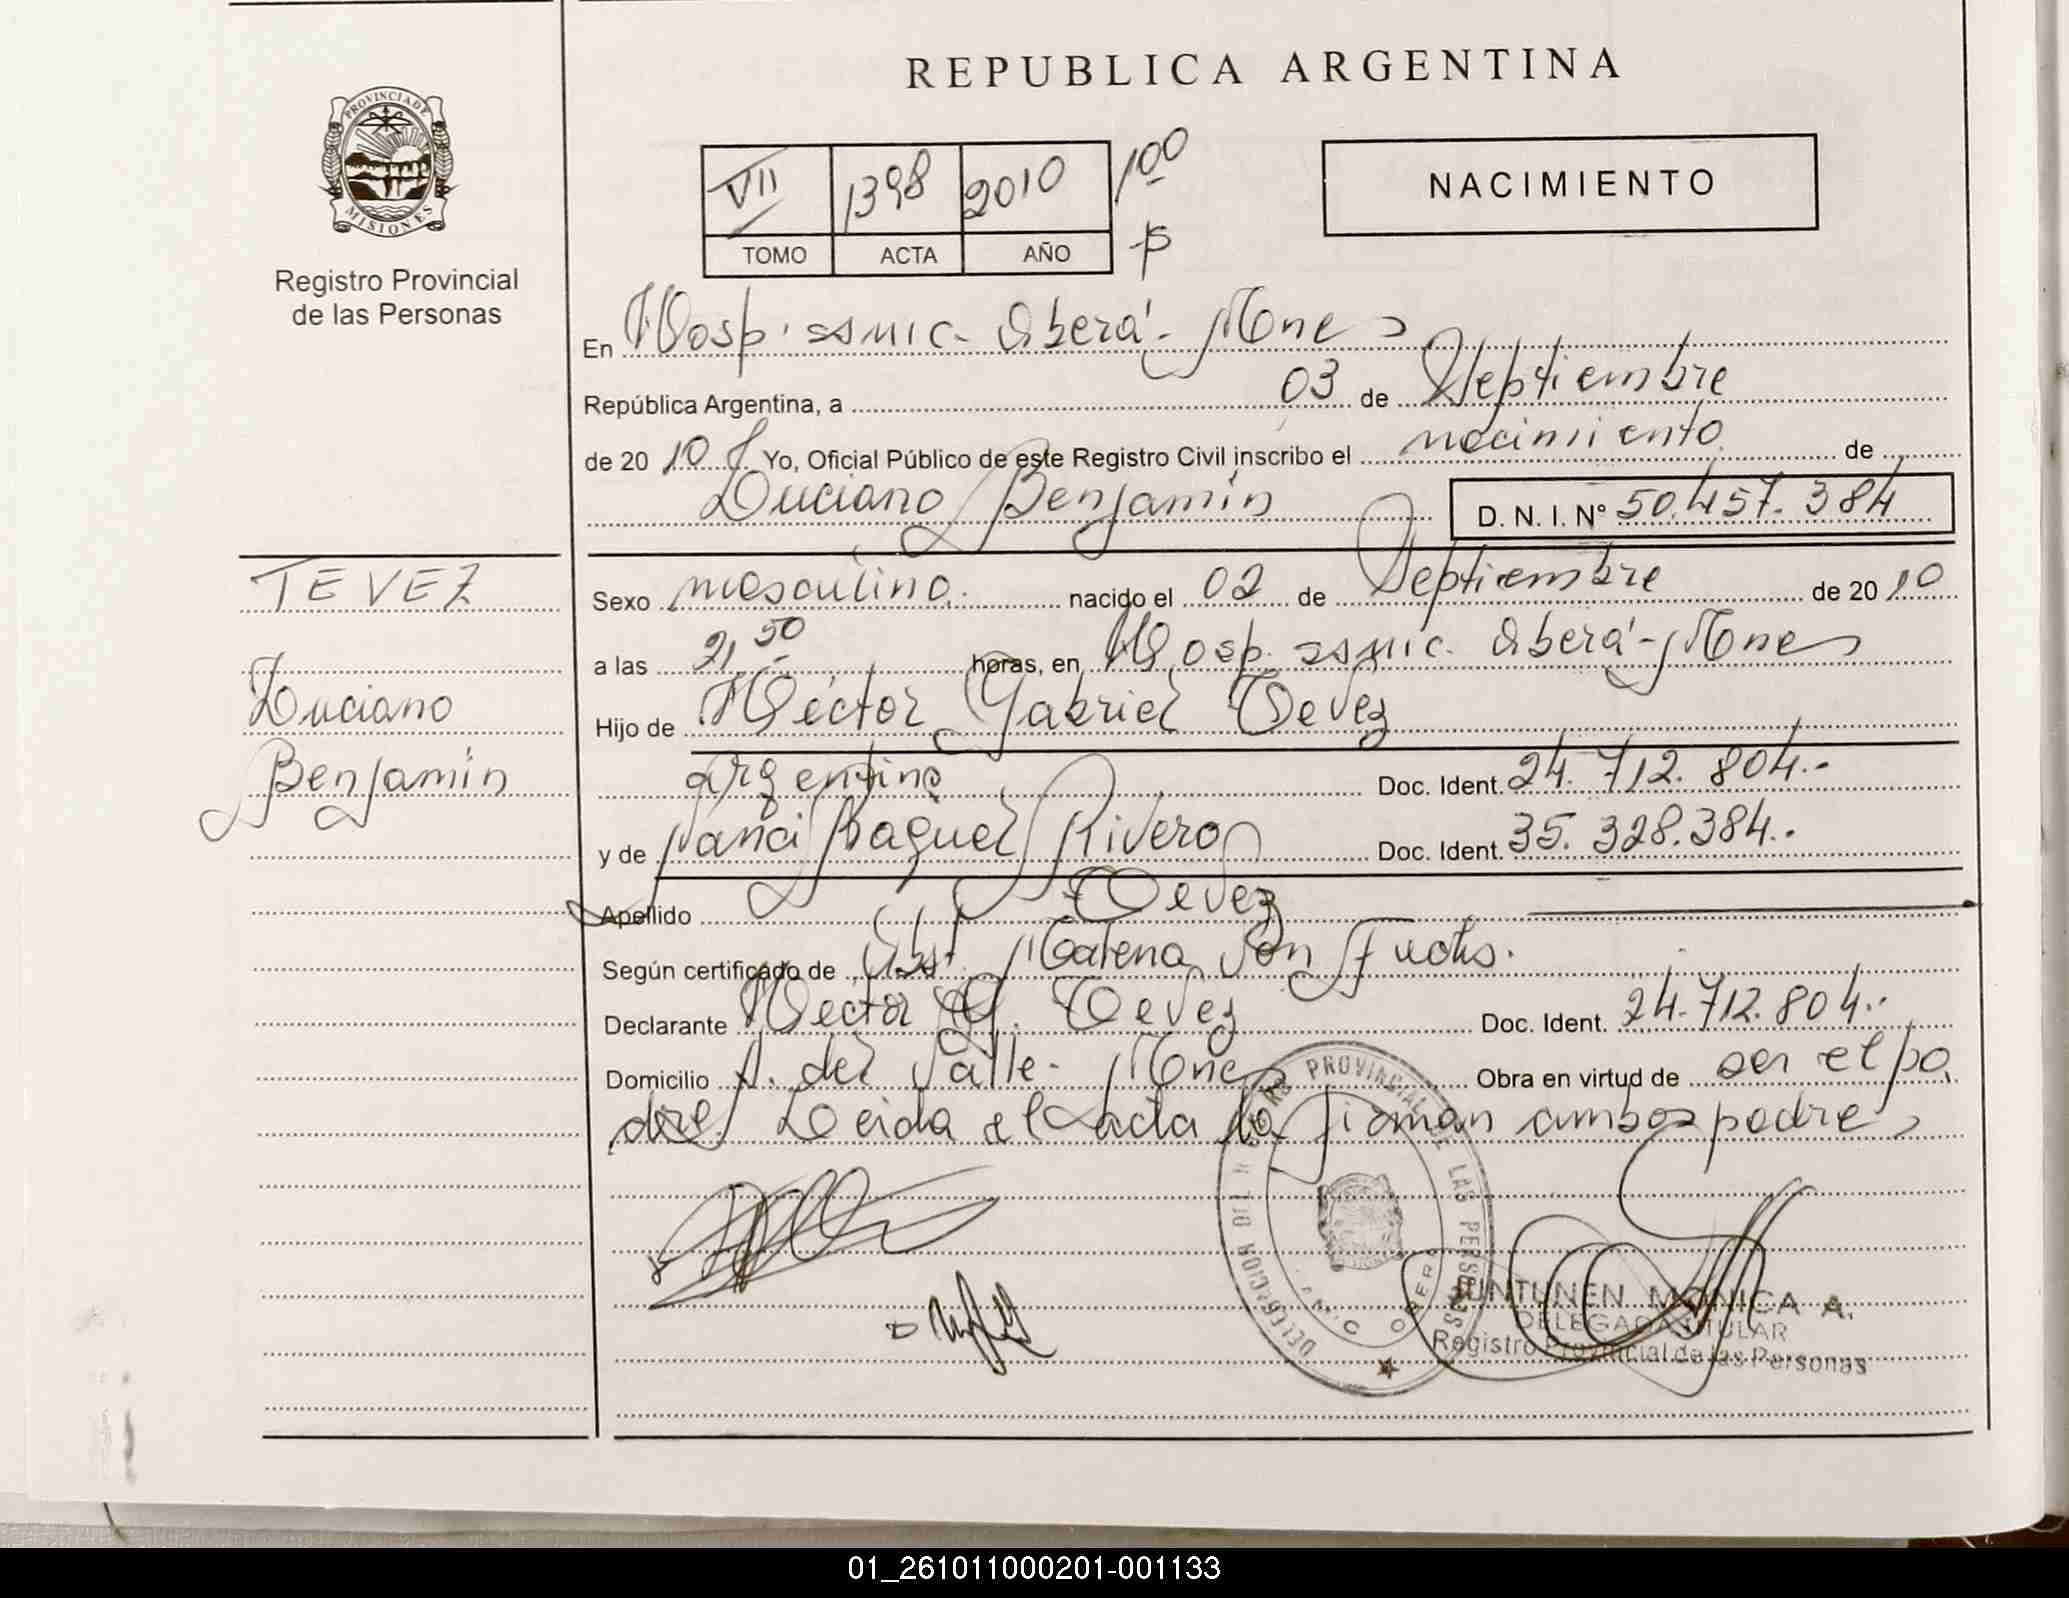 REPUBLICA ARGENTINA
PROVINCIA DE
MISIONES
Registro Provincial
de las Personas
VII 1398 2010 100
TOMO ACTA AÑO
NACIMIENTO
En Hosp. SAMIC. Oberá - Mnes
República Argentina, a 03 de Septiembre
de 2010 Yo, Oficial Público de este Registro Civil inscribo el nacimiento de
Luciano Benjamín D. N. I. Nº 50.457.384
TEVEZ
Luciano
Benjamín
Sexo masculino. nacido el 02 de Septiembre de 2010
a las 21,50 horas, en Hosp. SAMIC. Oberá - Mnes
Hijo de Héctor Gabriel Tevez
argentino Doc. Ident. 24.712.804.-
y de Nanci Raquel Rivero Doc. Ident. 35.328.384.-
Apellido Tevez
Según certificado de Obst. Malena Von Fuchs.
Declarante Hector G. Tevez Doc. Ident. 24.712.804.-
Domicilio A. del Valle - Mnes Obra en virtud de ser el pa
dre Leida el acta la firman ambos padres
REGISTRO PROVINCIAL DE LAS PERSONAS
DELEGACION
OBERA
JUNTUNEN MONICA A.
DELEGADA TITULAR
Registro Provincial de las Personas
01_261011000201-001133